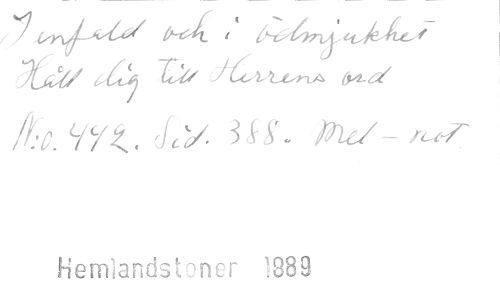 I enfald och i ödmjukhet
Håll dig till Herrens ord
N:o. 442. Sid. 388. Mel-not.
Hemlandstoner 1889